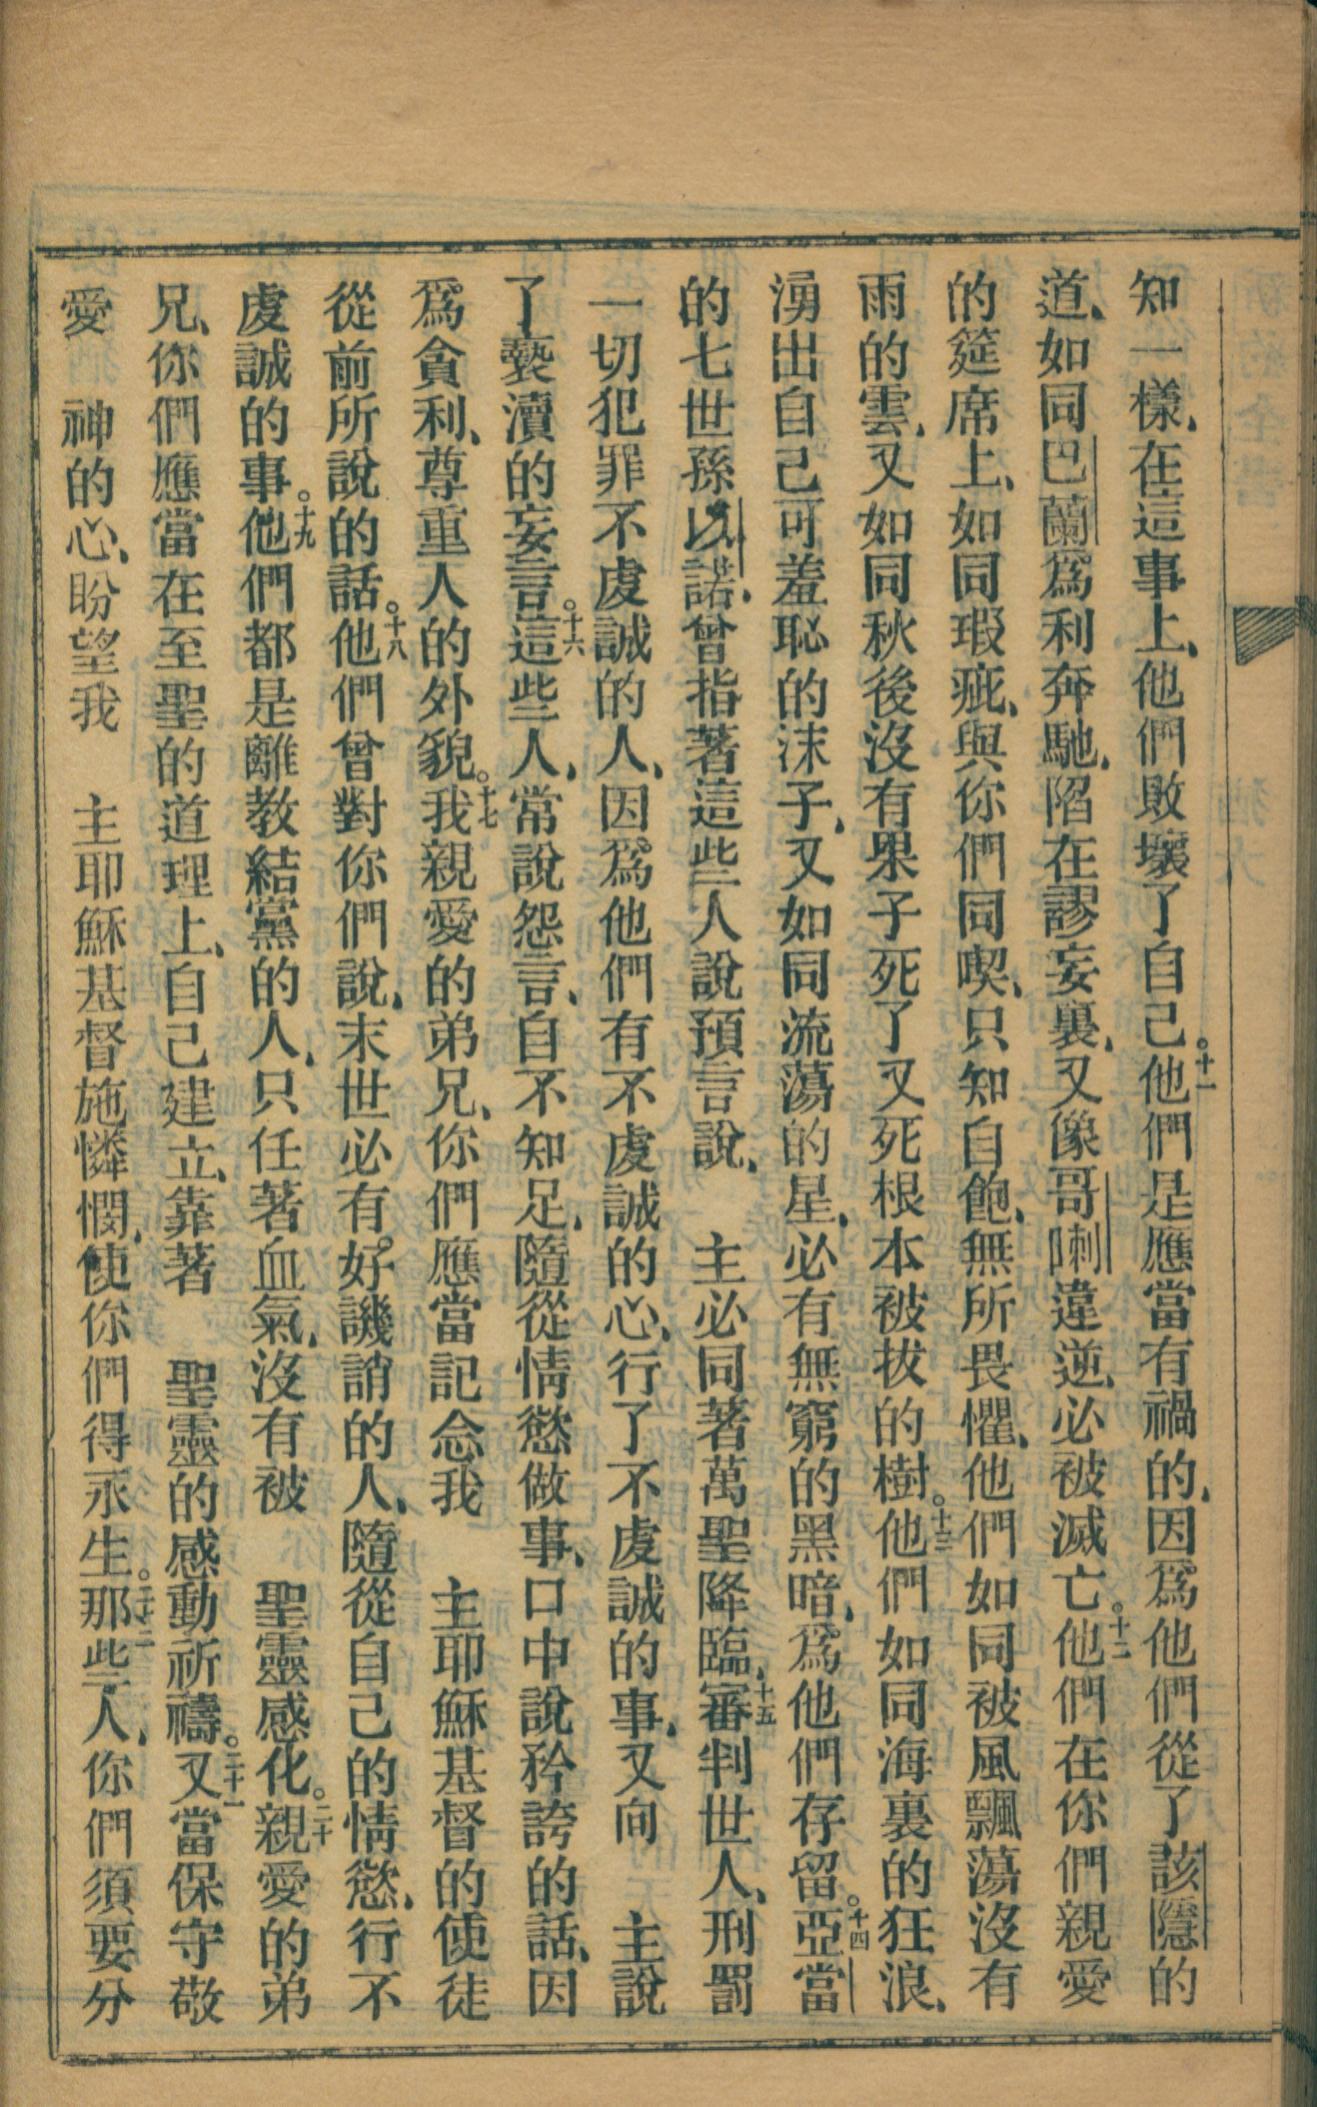 知一樣、在這事上、他們敗壞了自己。十一他們是應當有禍的、因爲他們從了該隱的
道、如同巴蘭爲利奔馳、陷在謬妄裏、又像哥喇違逆、必被滅亡。十二他們在你們親愛
的筵席上、如同瑕疵、與你們同喫、只知自飽、無所畏懼、他們如同被風飄蕩沒有
雨的雲、又如同秋後沒有果子死了又死根本被拔的樹。十三他們如同海裏的狂浪、
湧出自己可羞恥的沫子、又如同流蕩的星、必有無窮的黑暗、爲他們存留。十四亞當
的七世孫以諾、曾指著這些人說預言說、 主必同著萬聖降臨、十五審判世人、刑罰
一切犯罪不虔誠的人、因爲他們有不虔誠的心、行了不虔誠的事、又向 主說
了褻瀆的妄言。十六這些人、常說怨言、自不知足、隨從情慾做事、口中說矜誇的話、因
爲貪利、尊重人的外貌。十七我親愛的弟兄、你們應當記念我 主耶穌基督的使徒
從前所說的話。十八他們曾對你們說、末世必有好譏誚的人、隨從自己的情慾、行不
虔誠的事。十九他們都是離教結黨的人、只任著血氣、沒有被 聖靈感化。二十親愛的弟
兄、你們應當在至聖的道理上、自己建立、靠著 聖靈的感動祈禱。二十一又當保守敬
愛 神的心、盼望我 主耶穌基督施憐憫、使你們得永生。二十二那些人、你們須要分